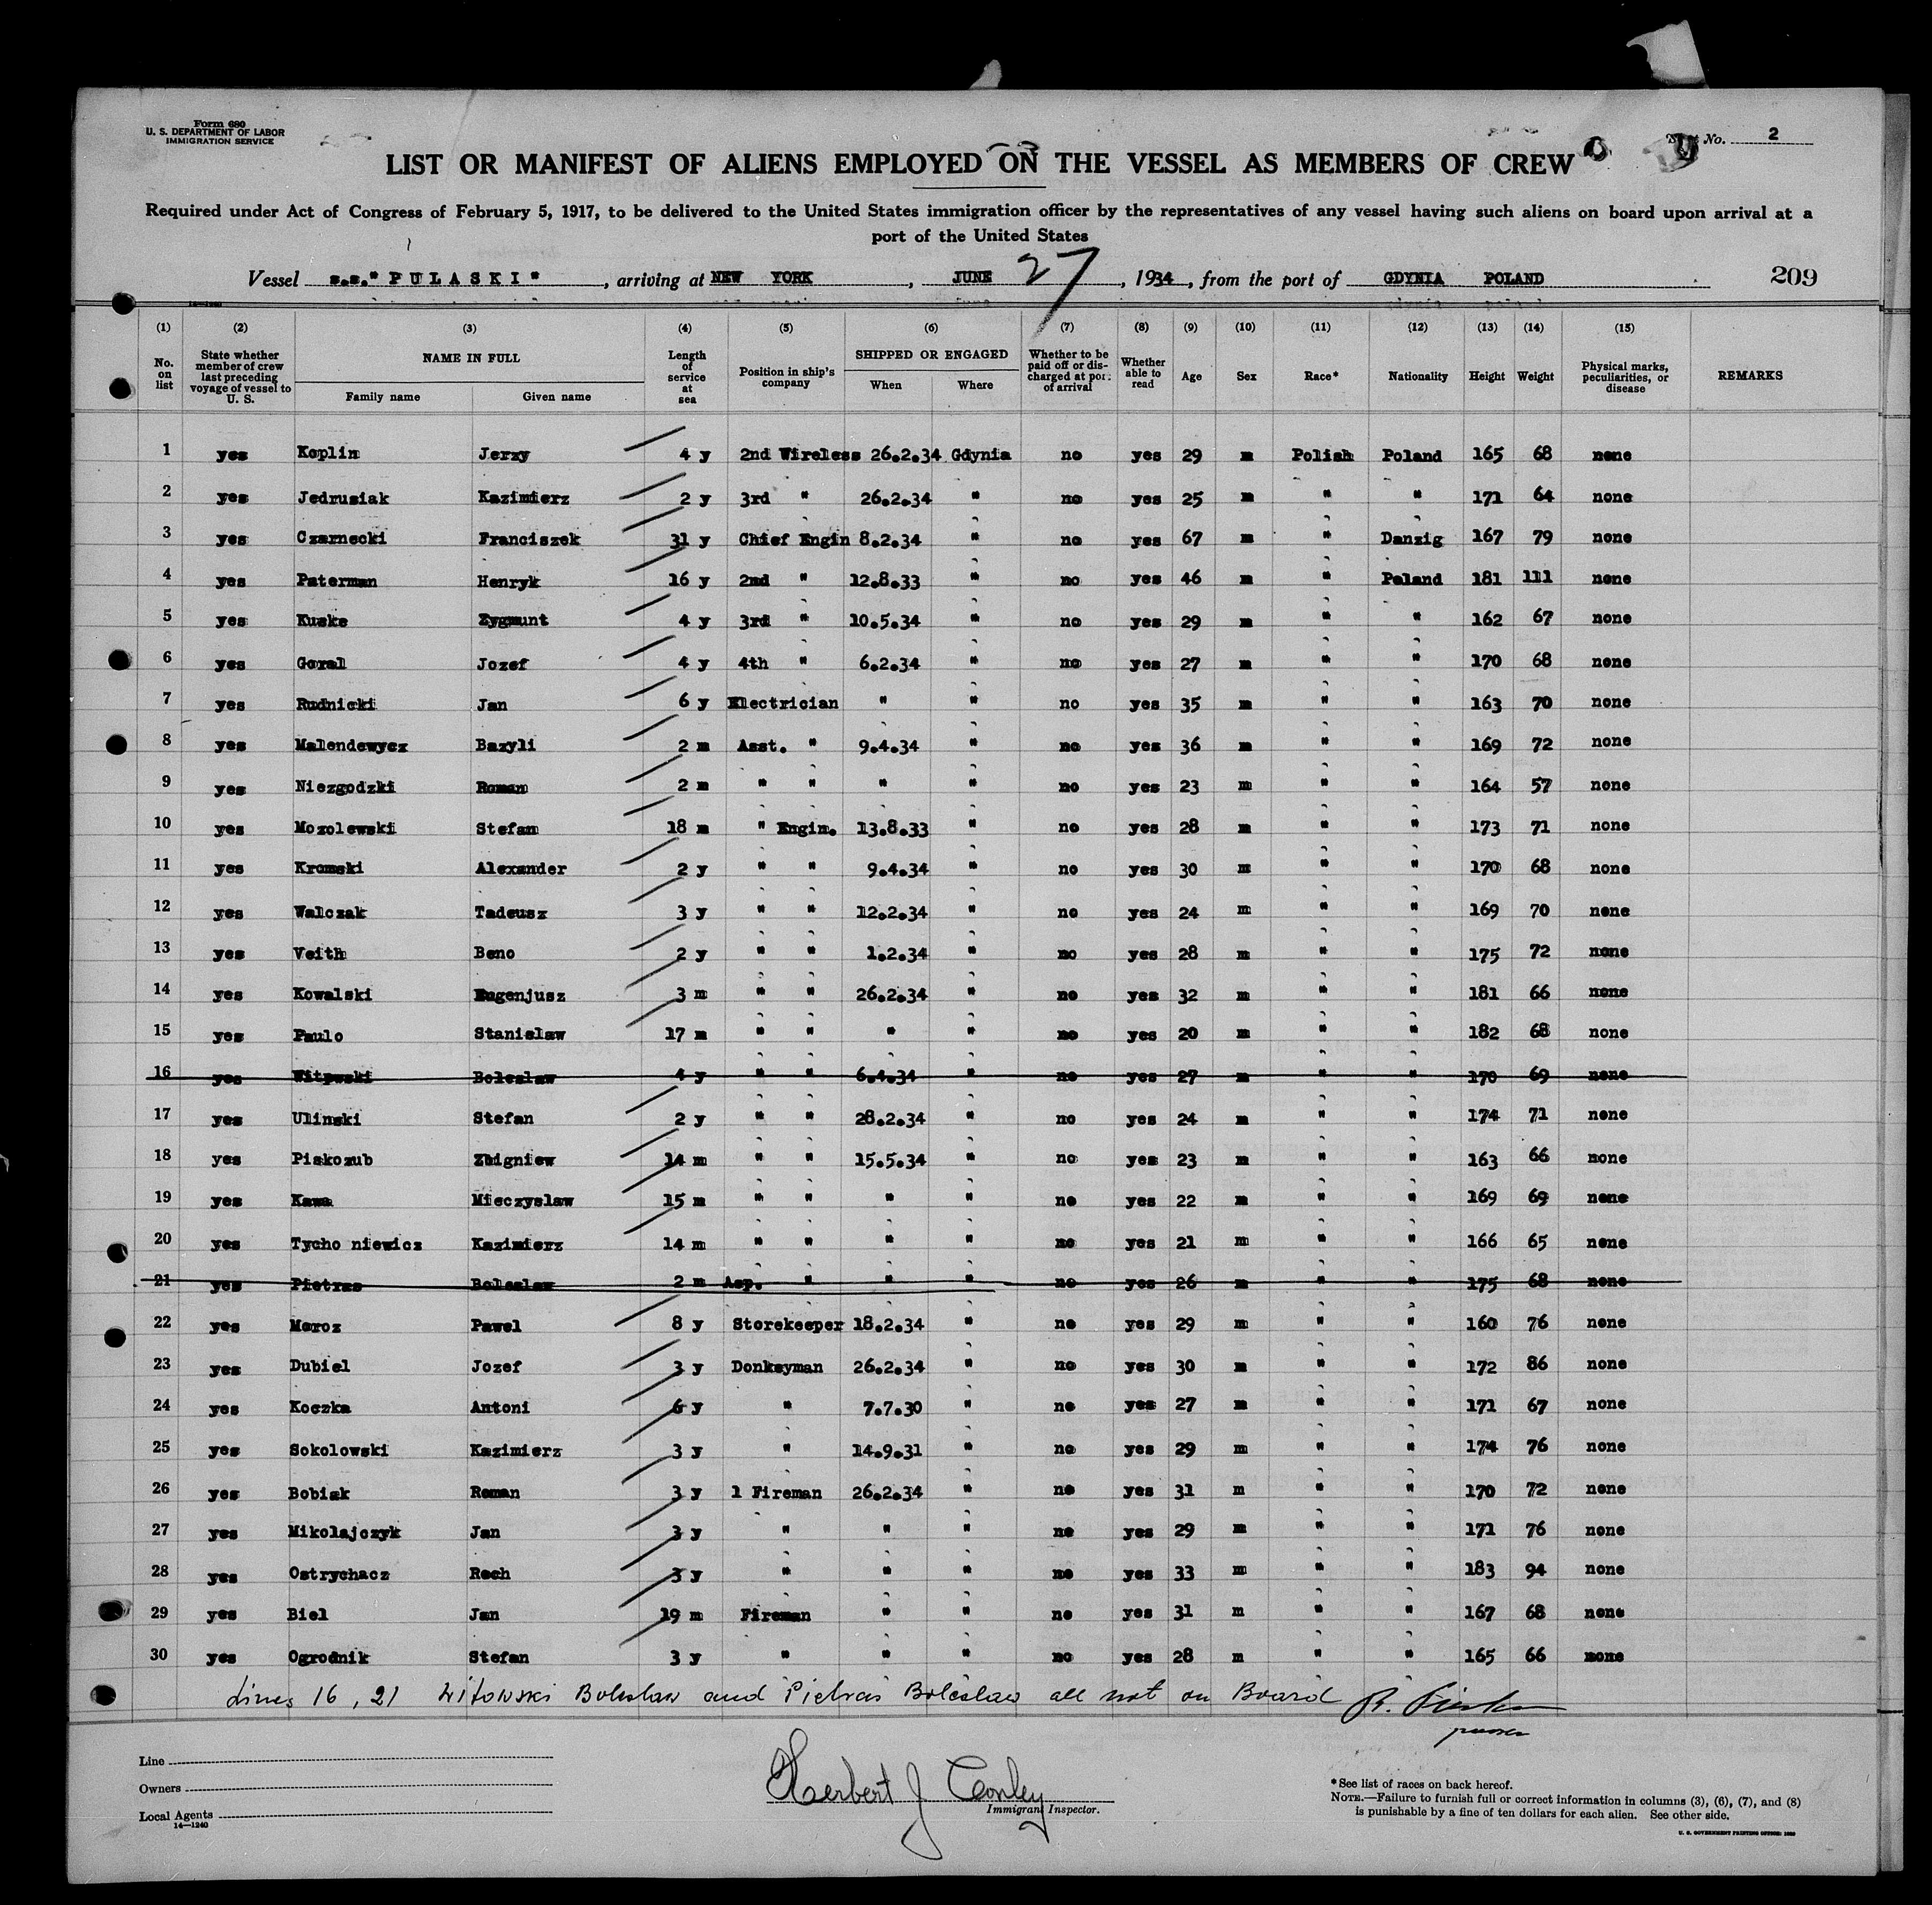 Form 680
U. S. DEPARTMENT OF LABOR
IMMIGRATION SERVICE
No. 2
LIST OR MANIFEST OF ALIENS EMPLOYED ON THE VESSEL AS MEMBERS OF CREW
Required under Act of Congress of February 5, 1917, to be delivered to the United States immigration officer by the representatives of any vessel having such aliens on board upon arrival at a
port of the United States
Vessel s.s."PULASKI", arriving at NEW YORK, JUNE 27, 1934, from the port of GDYNIA POLAND 209
(1) (2) (3) (4) (5) (6) (7) (8) (9) (10) (11) (12) (13) (14) (15)
No. on list State whether member of crew last preceding voyage of vessel to U. S. NAME IN FULL Family name Given name Length of service at sea Position in ship's company SHIPPED OR ENGAGED When Where Whether to be paid off or discharged at port of arrival Whether able to read Age Sex Race* Nationality Height Weight Physical marks, peculiarities, or disease REMARKS
1 yes Koplin Jerzy 4 y 2nd Wireless 26.2.34 Gdynia no yes 29 m Polish Poland 165 68 none
2 yes Jedrusiak Kazimierz 2 y 3rd " 26.2.34 " no yes 25 m " " 171 64 none
3 yes Czarnecki Franciszek 31 y Chief Engin 8.2.34 " no yes 67 m " Danzig 167 79 none
4 yes Paterman Henryk 16 y 2nd " 12.8.33 " no yes 46 m " Poland 181 111 none
5 yes Kuske Zygmunt 4 y 3rd " 10.5.34 " no yes 29 m " " 162 67 none
6 yes Goral Jozef 4 y 4th " 6.2.34 " no yes 27 m " " 170 68 none
7 yes Rudnicki Jan 6 y Electrician " " no yes 35 m " " 163 70 none
8 yes Malendewycz Bazyli 2 m Asst. " 9.4.34 " no yes 36 m " " 169 72 none
9 yes Niezgodzki Roman 2 m " " " " no yes 23 m " " 164 57 none
10 yes Mozolewski Stefan 18 m " Engin. 13.8.33 " no yes 28 m " " 173 71 none
11 yes Kromski Alexander 2 y " " 9.4.34 " no yes 30 m " " 170 68 none
12 yes Walczak Tadeusz 3 y " " 12.2.34 " no yes 24 m " " 169 70 none
13 yes Veith Beno 2 y " " 1.2.34 " no yes 28 m " " 175 72 none
14 yes Kowalski Eugenjusz 3 m " " 26.2.34 " no yes 32 m " " 181 66 none
15 yes Paulo Stanislaw 17 m " " " " no yes 20 m " " 182 68 none
16 yes Witowski Boleslaw 4 y " " 6.4.34 " no yes 27 m " " 170 69 none
17 yes Ulinski Stefan 2 y " " 28.2.34 " no yes 24 m " " 174 71 none
18 yes Piskozub Zbigniew 14 m " " 15.5.34 " no yes 23 m " " 163 66 none
19 yes Kawa Mieczyslaw 15 m " " " " no yes 22 m " " 169 69 none
20 yes Tycho niewicz Kazimierz 14 m " " " " no yes 21 m " " 166 65 none
21 yes Pietras Boleslaw 2 m Asp. " " " no yes 26 m " " 175 68 none
22 yes Moroz Pawel 8 y Storekeeper 18.2.34 " no yes 29 m " " 160 76 none
23 yes Dubiel Jozef 3 y Donkeyman 26.2.34 " no yes 30 m " " 172 86 none
24 yes Koczka Antoni 6 y " 7.7.30 " no yes 27 m " " 171 67 none
25 yes Sokolowski Kazimierz 3 y " 14.9.31 " no yes 29 m " " 174 76 none
26 yes Bobiak Roman 3 y 1 Fireman 26.2.34 " no yes 31 m " " 170 72 none
27 yes Mikolajczyk Jan 3 y " " " no yes 29 m " " 171 76 none
28 yes Ostrychacz Roch 3 y " " " no yes 33 m " " 183 94 none
29 yes Biel Jan 19 m Fireman " " no yes 31 m " " 167 68 none
30 yes Ogrodnik Stefan 3 y " " " no yes 28 m " " 165 66 none
Lines 16, 21 Witowski Boleslaw and Pietras Boleslaw all not on Board R.
purser
Line
Owners
Local Agents
14—1240
Herbert J Conley
Immigrant Inspector.
*See list of races on back hereof.
NOTE.—Failure to furnish full or correct information in columns (3), (6), (7), and (8)
is punishable by a fine of ten dollars for each alien. See other side.